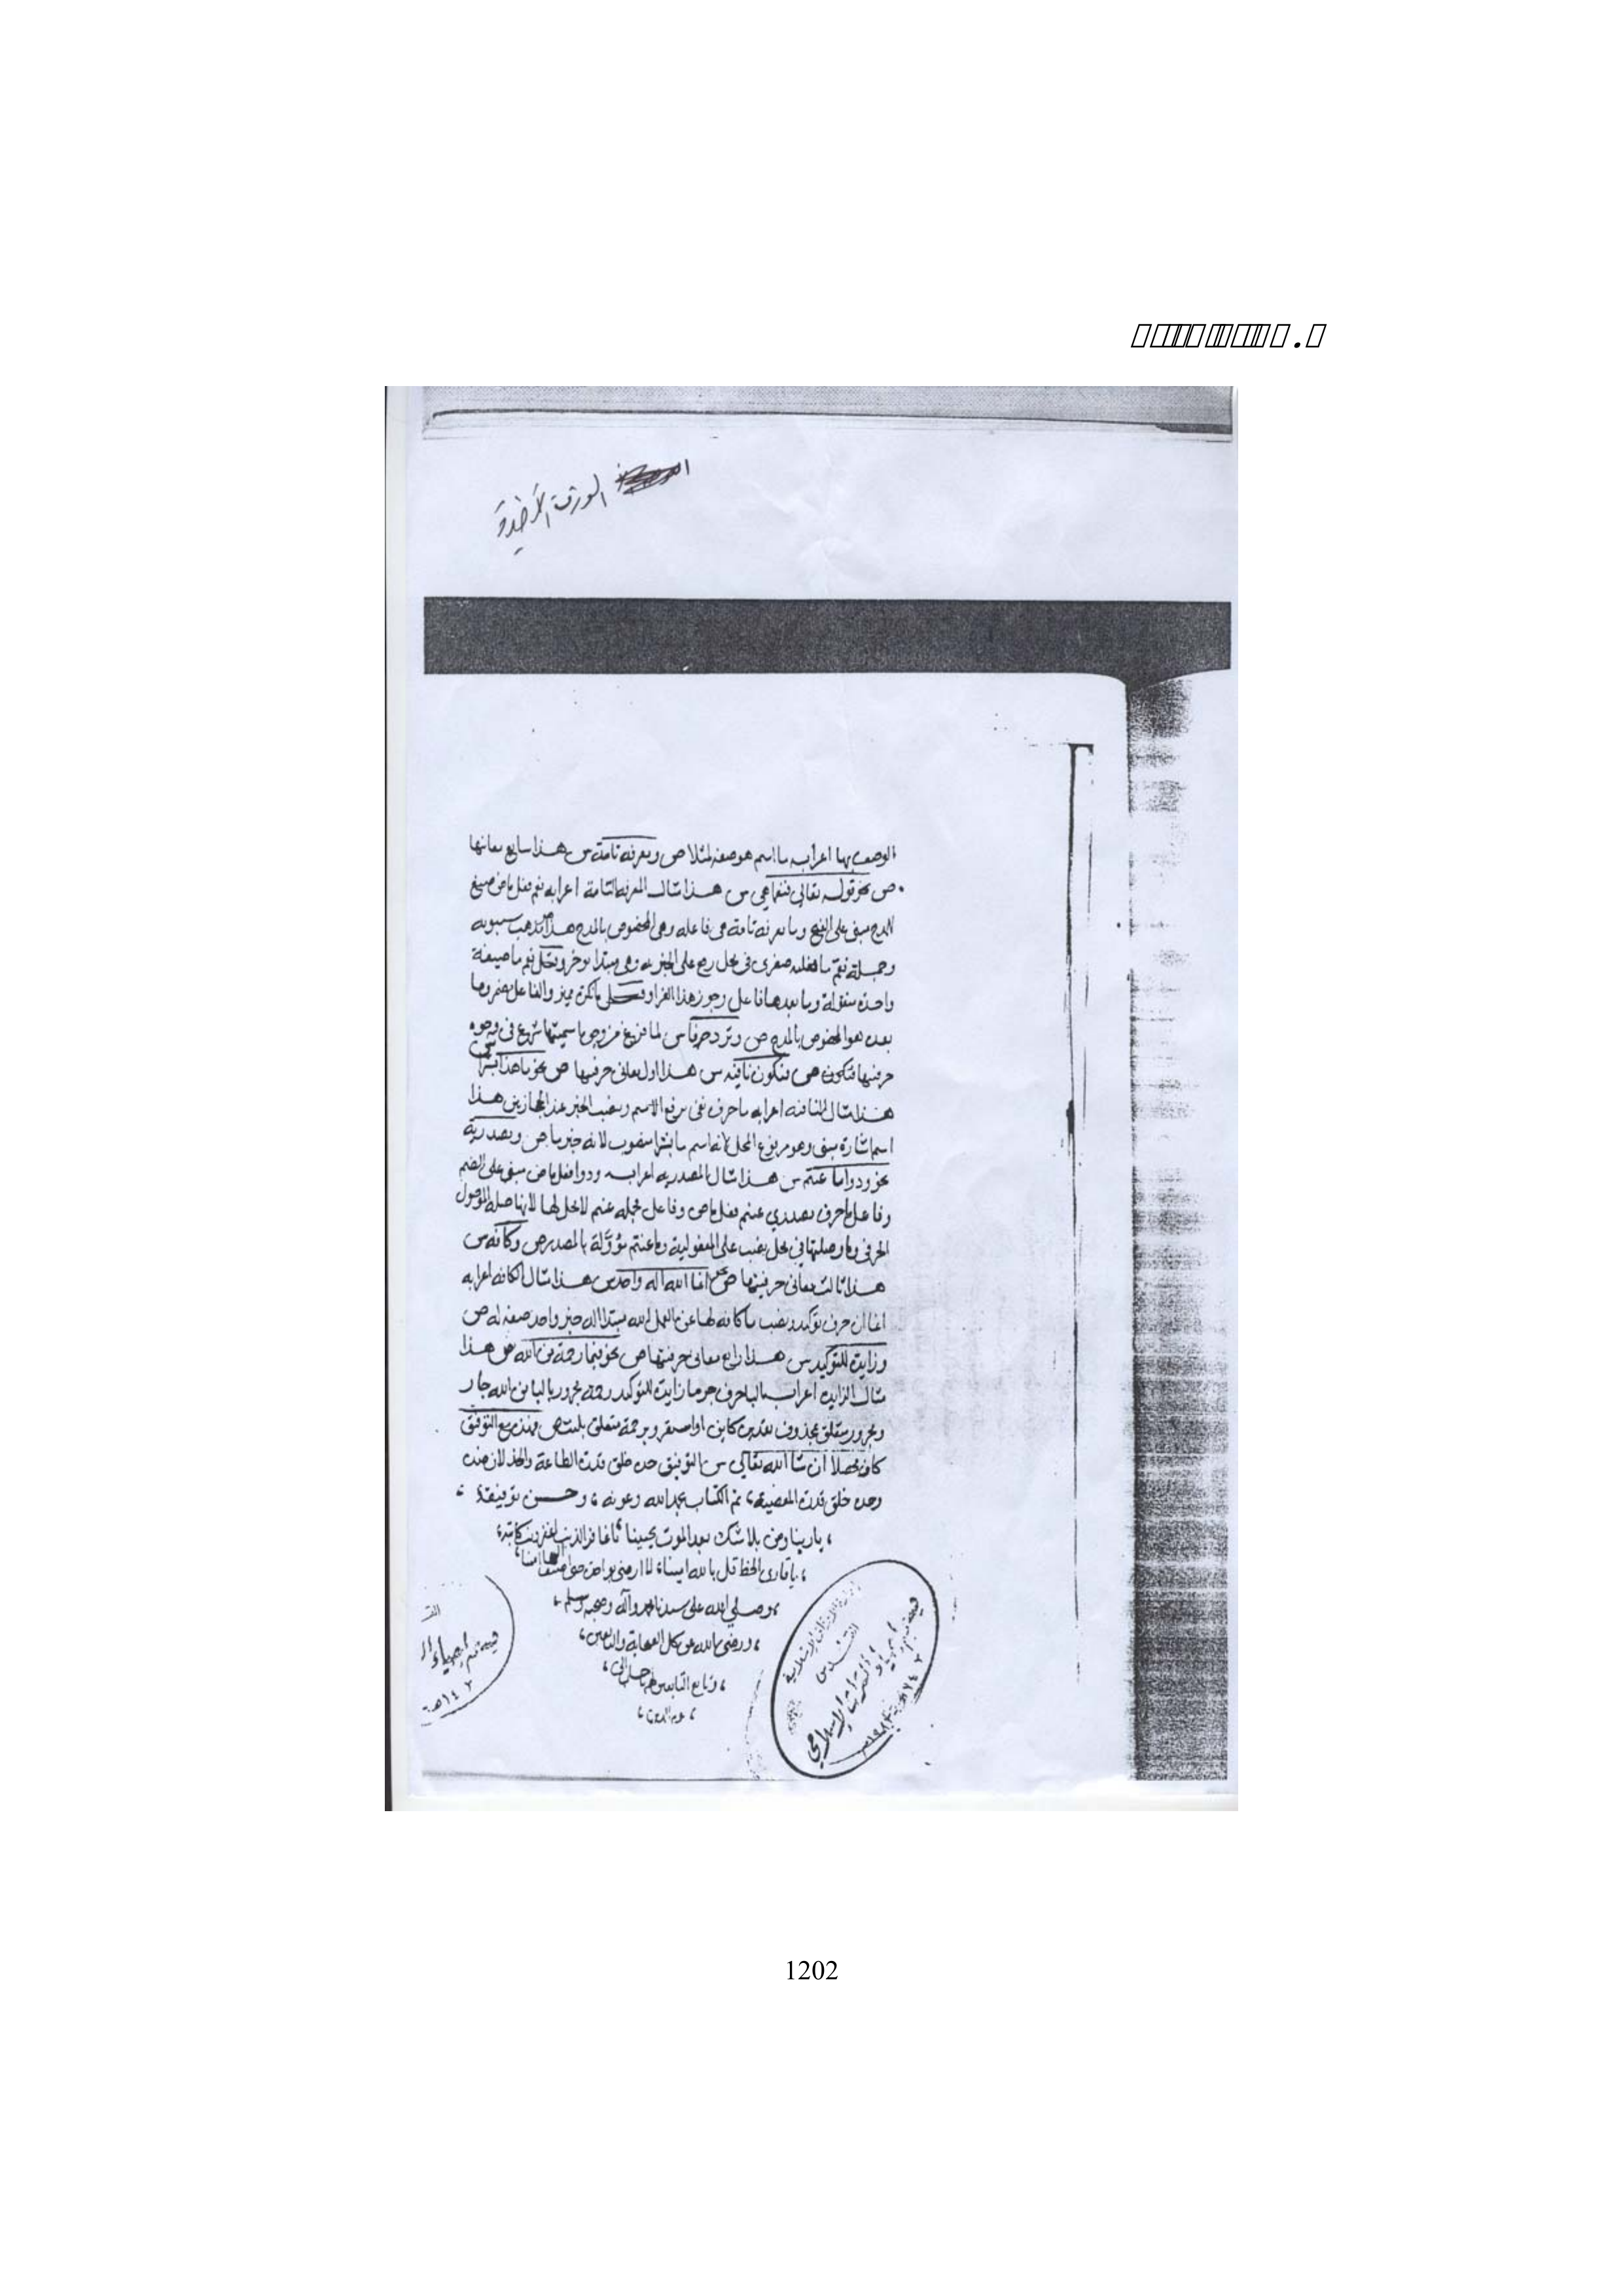 الورقة الأخيرة
الوصف بها اعرابه ما اسم هو صفة لمثلا ص ومعرفة تامة س هذا سابع معانيها
ص نحو قوله تعالى فنعما هي س هذا مثال المعرفة التامة اعرابه نعم فعل ماض صيغ
للمدح مبني على الفتح وما معرفة تامة هي فاعله وهي المخصوص بالمدح هذا مذهب سيبويه
وجملة نعم ما فعلية صغرى في محل رفع على الخبرية وهي مبتدا موخر
واحدة وما بعدها فاعل وجوز هذا الفرا مميز والفاعل مضمر وما
بعده هو المخصوص بالمدح ص وترد حرفا س لما فرغ من وجوه اسميتها شرع في وجوه
حرفيتها ص فتكون نافية س هذا اول معاني حرفيتها ص نحو ما هذا بشرا
هذا مثال النافية اعرابه ما حرف نفي يرفع الاسم وينصب الخبر عند الحجازيين هذا
اسم اشارة مبني وهو مرفوع المحل لانه اسم ما بشرا منصوب لانه خبر ما ص ومصدرية
نحو ودوا ما عنتم س هذا مثال المصدرية اعرابه ودوا فعل ماض مبني على الضم
وفاعل ما حرف مصدري عنتم فعل ماض وفاعل جملة عنتم لا محل لها لانها صلة الموصول
الحرفي وما وصلتها في محل نصب على المفعولية وما عنتم مؤولة بالمصدر ص وكافة س
هذا ثالث معاني حرفيتها ص نحو انما الله اله واحد س هذا مثال الكافة اعرابه
انما ان حرف توكيد ونصب ما كافة لها عن العمل الله مبتدا اله خبر واحد صفة له ص
وزايدة للتوكيد س هذا رابع معاني حرفيتها ص نحو فبما رحمة من الله س هذا
مثال الزايدة اعرابه البا حرف جر ما زايدة للتوكيد رحمة مجرور بالبا من الله جار
ومجرور متعلق بمحذوف تقديره كاين او استقر وبرحمة متعلق بلنت ص وهذه مع التوفيق
كاف محصلا ان شا الله تعالى س التوفيق حده خلق قدرة الطاعة والخذلان ضده
وحده خلق قدرة المعصية، تم الكتاب بحمد الله وعونه، وحسن توفيقه،
، يا ربنا ومن بلا شك بعد الموت يحيينا، يا غافر الذنب اغفر ذنب كاتبه،
، يا قاري الخط قل بالله امينا، لا ارضى بواحدة حتى
، وصلى الله على سيدنا محمد وآله وصحبه وسلم،
، ورضي الله عن كل الصحابة والتابعين،
، وتابع التابعين لهم باحسان الى،
، يوم الدين،
وزارة الاوقاف الاسلامية
القدس
قسم إحياء التراث الإسلامي
القد
قسم إحياء ال
١٤٠٢هـ
1202